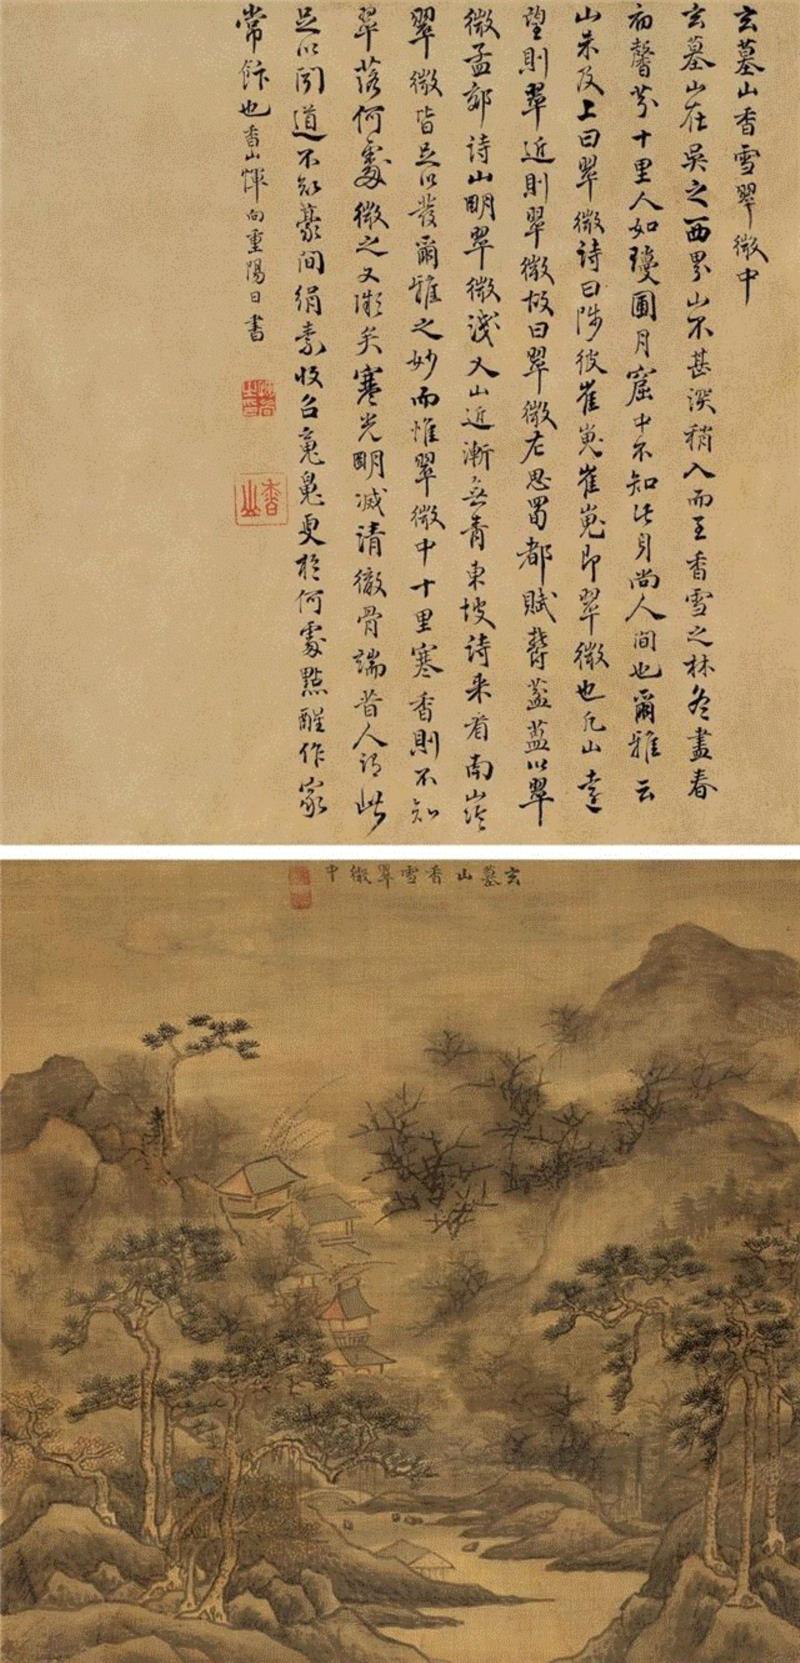 玄墓山香雪翠微中
玄墓山在吳之西界山不甚深稍入而至香雪之林冬盡春
初馨芬十里人如瓊圃月窟中不知此身尚人間也爾雅云
山未及上曰翠微詩曰陟彼崔嵬崔嵬即翠微也凡山遠
望則翠近則翠微故曰翠微左思蜀都賦欝葢蓝以翠
微孟郊詩山明翠微淺又山近漸無青東坡詩来看南山冷
翠微皆足以發爾雅之妙而惟翠微中十里寒香則不知
翠落何處微之又微矣寒光明滅清徹骨端昔人謂此
足以聞道不知豪間絹素收召魂魄更於何處點醒作家
常飰也香山惲向重陽日書
香山
玄墓山香雪翠微中